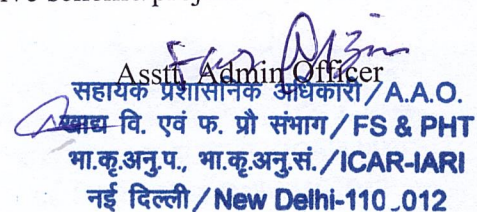 Asstt. Admin Officer
सहायक प्रशासनिक अधिकारी / A.A.O.
खाद्य वि. एवं फ. प्रौ संभाग / FS & PHT
भा.कृ.अनु.प., भा.कृ.अनु.सं. / ICAR-IARI
नई दिल्ली / New Delhi-110 012